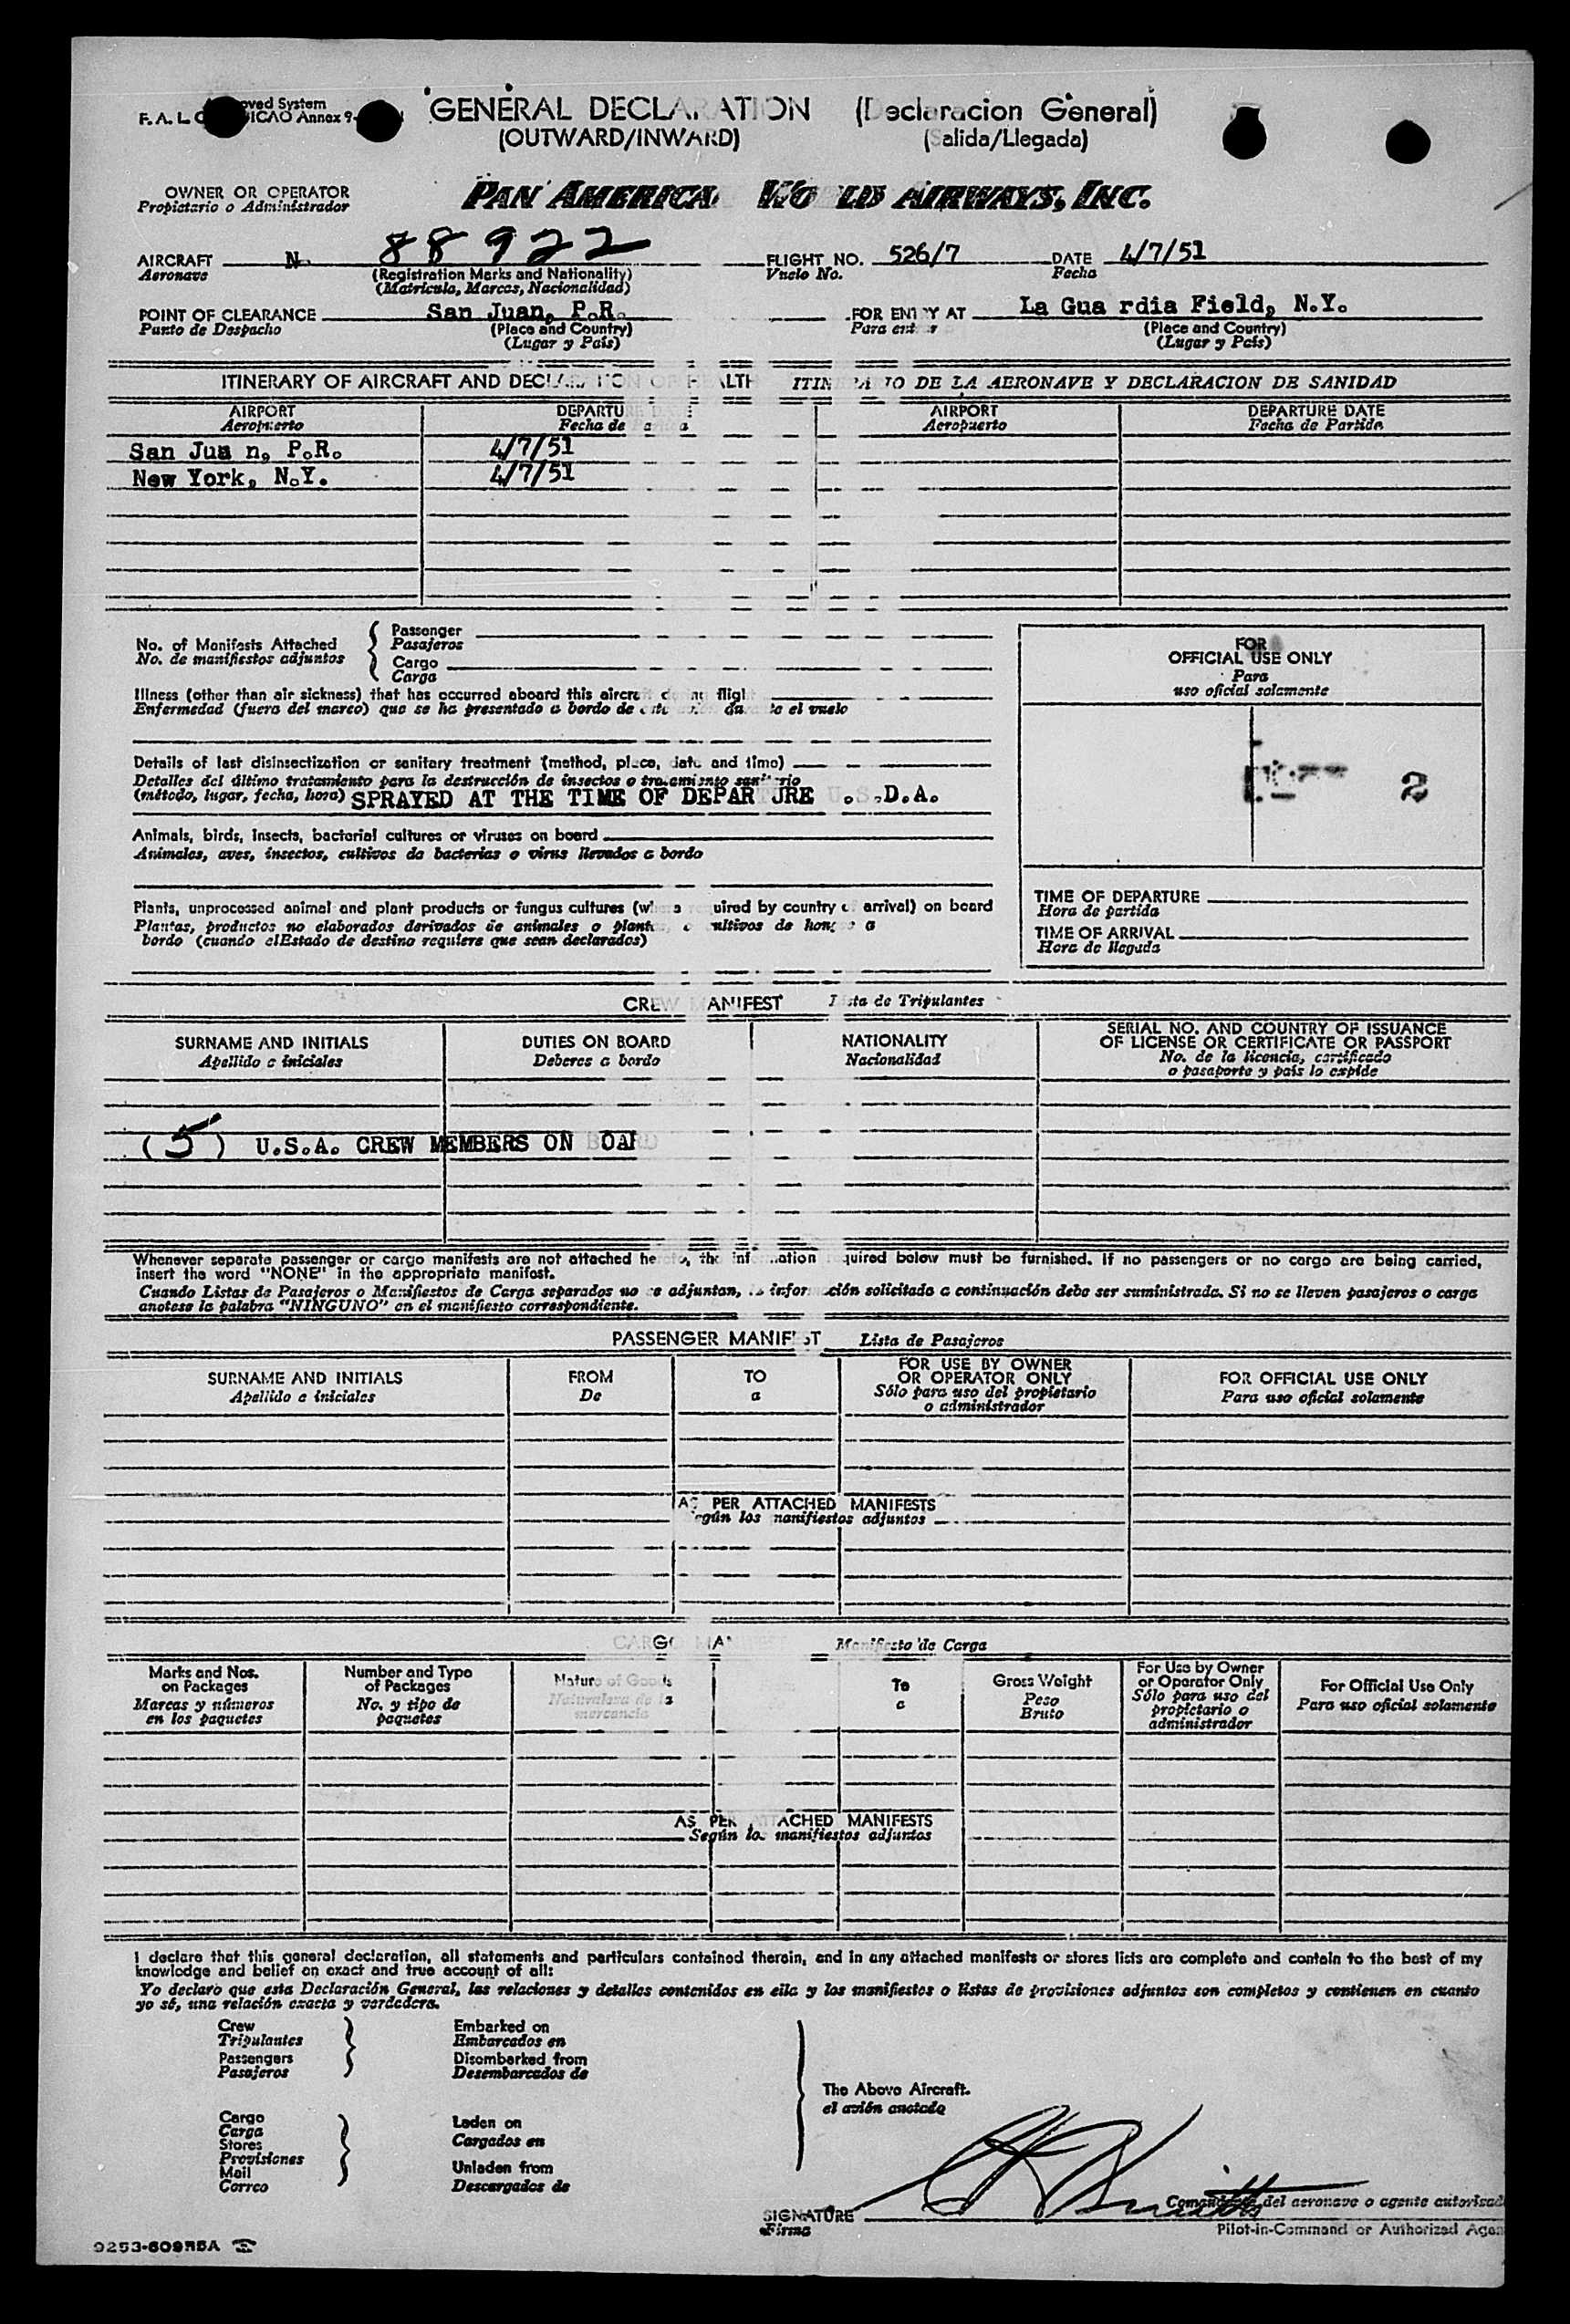 oved System
F. A. L. ICAO Annex 9-
GENERAL DECLARATION (Declaracion General)
(OUTWARD/INWARD) (Salida/Llegada)
OWNER OR OPERATOR
Propietario o Administrador
PAN AMERICA WO LD AIRWAYS, INC.
AIRCRAFT N. 88922 FLIGHT NO. 526/7 DATE 4/7/51
Aeronave (Registration Marks and Nationality) Vuelo No. Fecha
(Matricula, Marcas, Nacionalidad)
POINT OF CLEARANCE San Juan, P.R. FOR ENTRY AT La Gua rdia Field, N.Y.
Punto de Despacho (Place and Country) Para entrar (Place and Country)
(Lugar y País) (Lugar y País)
ITINERARY OF AIRCRAFT AND DECLARATION OF HEALTH ITINERARIO DE LA AERONAVE Y DECLARACION DE SANIDAD
AIRPORT DEPARTURE DATE AIRPORT DEPARTURE DATE
Aeropuerto Fecha de Partida Aeropuerto Fecha de Partida
San Jua n, P.R. 4/7/51
New York, N.Y. 4/7/51
No. of Manifests Attached
No. de manifiestos adjuntos
Passenger
Pasajeros
Cargo
Carga
FOR
OFFICIAL USE ONLY
Para
uso oficial solamente
Illness (other than air sickness) that has occurred aboard this aircraft during flight
Enfermedad (fuera del mareo) que se ha presentado a bordo de este avión durante el vuelo
Details of last disinsectization or sanitary treatment (method, place, date and time)
Detalles del último tratamiento para la destrucción de insectos o tratamiento sanitario
(método, lugar, fecha, hora) SPRAYED AT THE TIME OF DEPARTURE U.S.D.A.
2
Animals, birds, insects, bacterial cultures or viruses on board
Animales, aves, insectos, cultivos de bacterias o virus llevados a bordo
Plants, unprocessed animal and plant products or fungus cultures (where required by country of arrival) on board
Plantas, productos no elaborados derivados de animales o plantas, o cultivos de hongos a
bordo (cuando elEstado de destino requiere que sean declarados)
TIME OF DEPARTURE
Hora de partida
TIME OF ARRIVAL
Hora de llegada
CREW MANIFEST Lista de Tripulantes
SURNAME AND INITIALS DUTIES ON BOARD NATIONALITY SERIAL NO. AND COUNTRY OF ISSUANCE
Apellido e iniciales Deberes a bordo Nacionalidad OF LICENSE OR CERTIFICATE OR PASSPORT
No. de la licencia, certificado
o pasaporte y país lo expide
(5) U.S.A. CREW MEMBERS ON BOARD
Whenever separate passenger or cargo manifests are not attached hereto, the information required below must be furnished. If no passengers or no cargo are being carried,
insert the word "NONE" in the appropriate manifest.
Cuando Listas de Pasajeros o Manifiestos de Carga separados no se adjuntan, la información solicitada a continuación debe ser suministrada. Si no se lleven pasajeros o carga
anotese la palabra "NINGUNO" en el manifiesto correspondiente.
PASSENGER MANIFEST Lista de Pasajeros
SURNAME AND INITIALS FROM TO FOR USE BY OWNER FOR OFFICIAL USE ONLY
Apellido e iniciales De a OR OPERATOR ONLY Para uso oficial solamente
Sólo para uso del propietario
o administrador
AS PER ATTACHED MANIFESTS
Según los manifiestos adjuntos
CARGO MANIFEST Manifiesto de Carga
Marks and Nos. Number and Type Nature of Goods To Gross Weight For Use by Owner For Official Use Only
on Packages of Packages Naturaleza de la a Peso or Operator Only Para uso oficial solamente
Marcas y números No. y tipo de mercancia Bruto Sólo para uso del
en los paquetes paquetes propietario o
administrador
AS PER ATTACHED MANIFESTS
Según los manifiestos adjuntos
I declare that this general declaration, all statements and particulars contained therein, and in any attached manifests or stores lists are complete and contain to the best of my
knowledge and belief an exact and true account of all:
Yo declaro que esta Declaración General, las relaciones y detalles contenidos en ella y los manifiestos o listas de provisiones adjuntos son completos y contienen en cuanto
yo sé, una relación exacta y verdadera.
Crew Embarked on
Tripulantes Embarcados en
Passengers Disembarked from
Pasajeros Desembarcados de
The Above Aircraft.
el avión anotado
Cargo Laden on
Carga Cargados en
Stores
Provisiones Unladen from
Mail Descargados de
Correo
SIGNATURE Comandante del aeronave o agente autorizad
Firma Pilot-in-Command or Authorized Agen
9253-609R5A